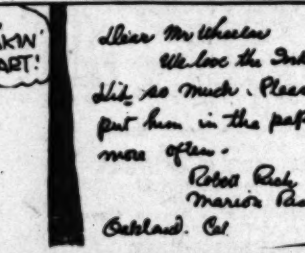 KIN'
ART!
Dear Mr Wheelan
We love the Ink
Kid so much. Pleas
put him in the pap
more often.
Robert
Marion
Oakland. Cal